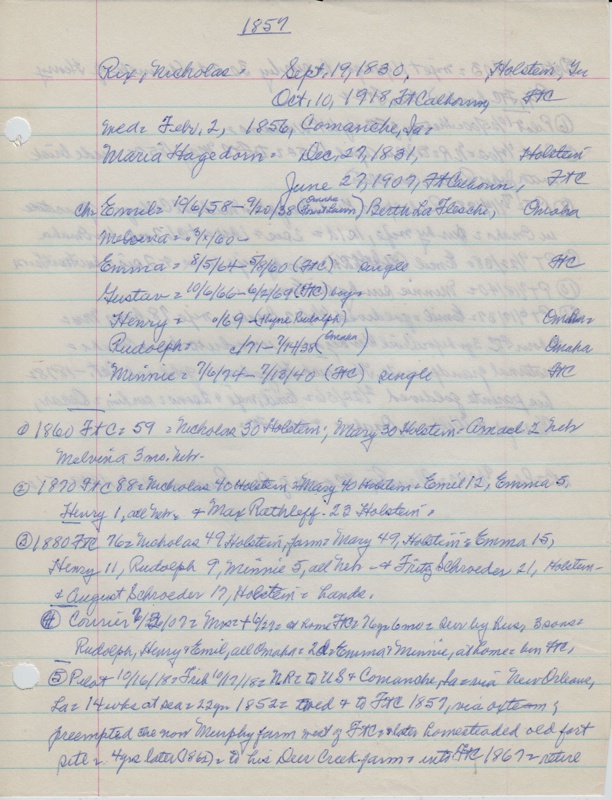 1857
Rix, Nicholas = Sept, 19, 1830, Holstein, Ger
Oct, 10, 1918, Ft Calhoun, FtC
med= Febr, 2, 1856, Comanche, Ia=
Maria Hagedorn= Dec, 27, 1831, Holstein
June 27, 1907, Ft Calhoun, FtC
Ch= Emil= 10/6/58- 9/20/38 (Omaha) Berth La Flesche, Omaha
Melvina= 60-
Emma= 8/5/64- 5/8/60 (FtC) single FtC
Gustav= 10/6/66- 6/2/69 (FtC)
Henry= 0/69- (Hyne Rudolph) Omaha
Rudolph= c/71- 7/14/38 (Omaha) Omaha
Minnie= 7/6/74- 7/13/40 (FtC) single FtC
① 1860 FtC= 59= Nicholas 30 Holstein; Mary 30 Holstein= 2 Nebr
Melvina 3 mo. Nebr-
② 1870 FtC 88= Nicholas 40 Holstein= Mary 40 Holstein= Emil 12, Emma 5,
Henry 1, all Nebr= & Max Rathleff- 23 Holstein.
③ 1880 FtC 76= Nicholas 49 Holstein, farm= Mary 49, Holstein= Emma 15,
Henry 11, Rudolph 9, Minnie 5, all Nebr- & Fritz Schroeder 21, Holstein-
& August Schroeder 17, Holstein= hands.
④ Courier 07= Mrs= + 6/27= at home FtC= 76 yr 6 mo= surv by hus, 3 sons=
Rudolph, Henry & Emil, all Omaha= 2 d= Emma & Minnie, at home= bur FtC,
⑤ Pilot 10/16/18= 10/17/18= NR= to US & Comanche, Ia= via New Orleans,
La= 14 wks at sea= 22 yr 1852= wed & to FtC 1857, via
preempted the now Murphy farm west of FtC= later homesteaded old fort
site= 4 yrs later (1862)= to his Deer Creek farm= into FtC 1867= retire